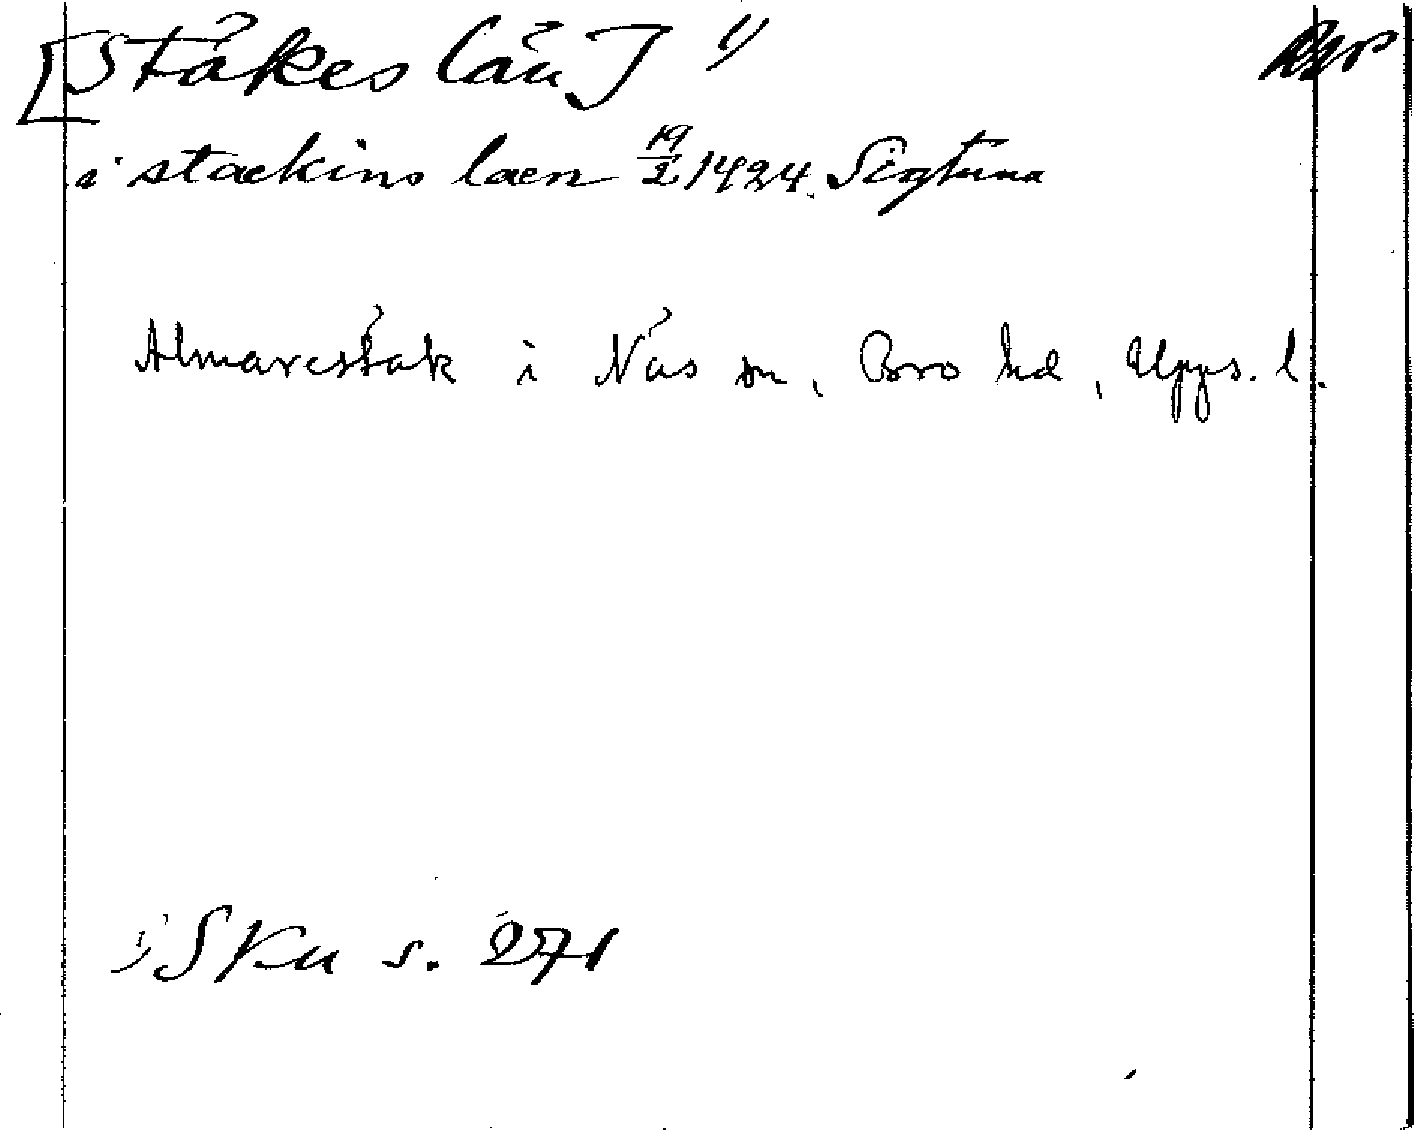 [Stäkes län] 1)
i stackins laen 19/2 1424. Sigtuna
Almarestäk i Näs sn, Bro hd, Upps. l.
1) SKu s. 271